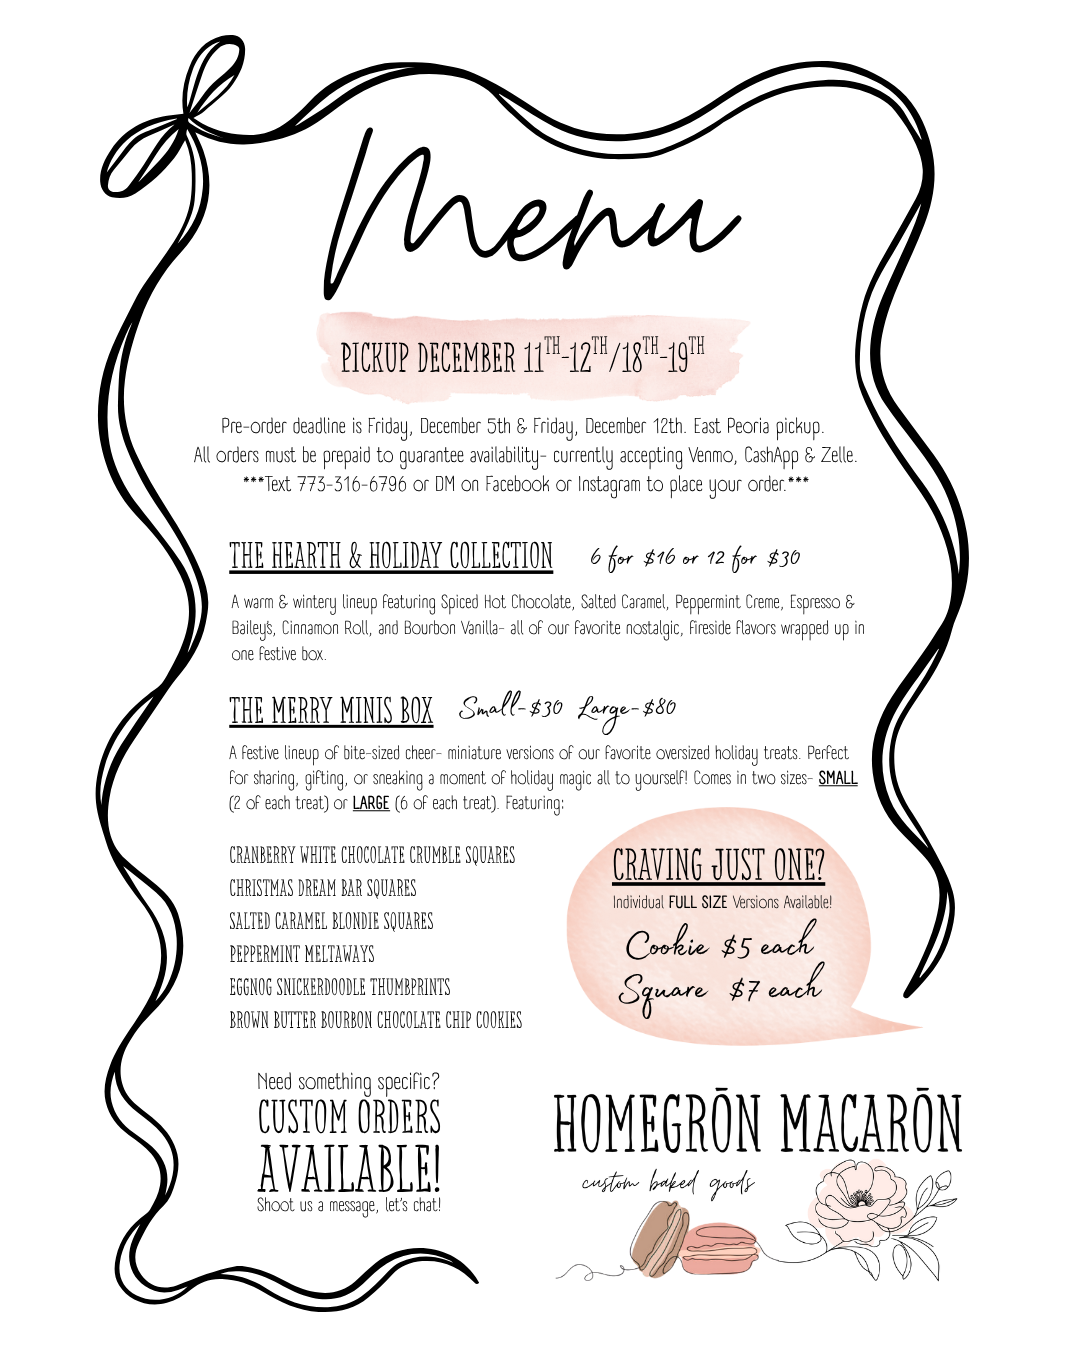 Menu
PICKUP DECEMBER 11TH-12TH/18TH-19TH
Pre-order deadline is Friday, December 5th & Friday, December 12th. East Peoria pickup.
All orders must be prepaid to guarantee availability- currently accepting Venmo, CashApp & Zelle.
***Text 773-316-6796 or DM on Facebook or Instagram to place your order.***
THE HEARTH & HOLIDAY COLLECTION 6 for $16 or 12 for $30
A warm & wintery lineup featuring Spiced Hot Chocolate, Salted Caramel, Peppermint Creme, Espresso &
Bailey's, Cinnamon Roll, and Bourbon Vanilla- all of our favorite nostalgic, fireside flavors wrapped up in
one festive box.
THE MERRY MINIS BOX Small-$30 Large-$80
A festive lineup of bite-sized cheer- miniature versions of our favorite oversized holiday treats. Perfect
for sharing, gifting, or sneaking a moment of holiday magic all to yourself! Comes in two sizes- SMALL
(2 of each treat) or LARGE (6 of each treat). Featuring:
CRANBERRY WHITE CHOCOLATE CRUMBLE SQUARES
CHRISTMAS DREAM BAR SQUARES
SALTED CARAMEL BLONDIE SQUARES
PEPPERMINT MELTAWAYS
EGGNOG SNICKERDOODLE THUMBPRINTS
BROWN BUTTER BOURBON CHOCOLATE CHIP COOKIES
CRAVING JUST ONE?
Individual FULL SIZE Versions Available!
Cookie $5 each
Square $7 each
Need something specific?
CUSTOM ORDERS
AVAILABLE!
Shoot us a message, let's chat!
HOMEGRŌN MACARŌN
custom baked goods